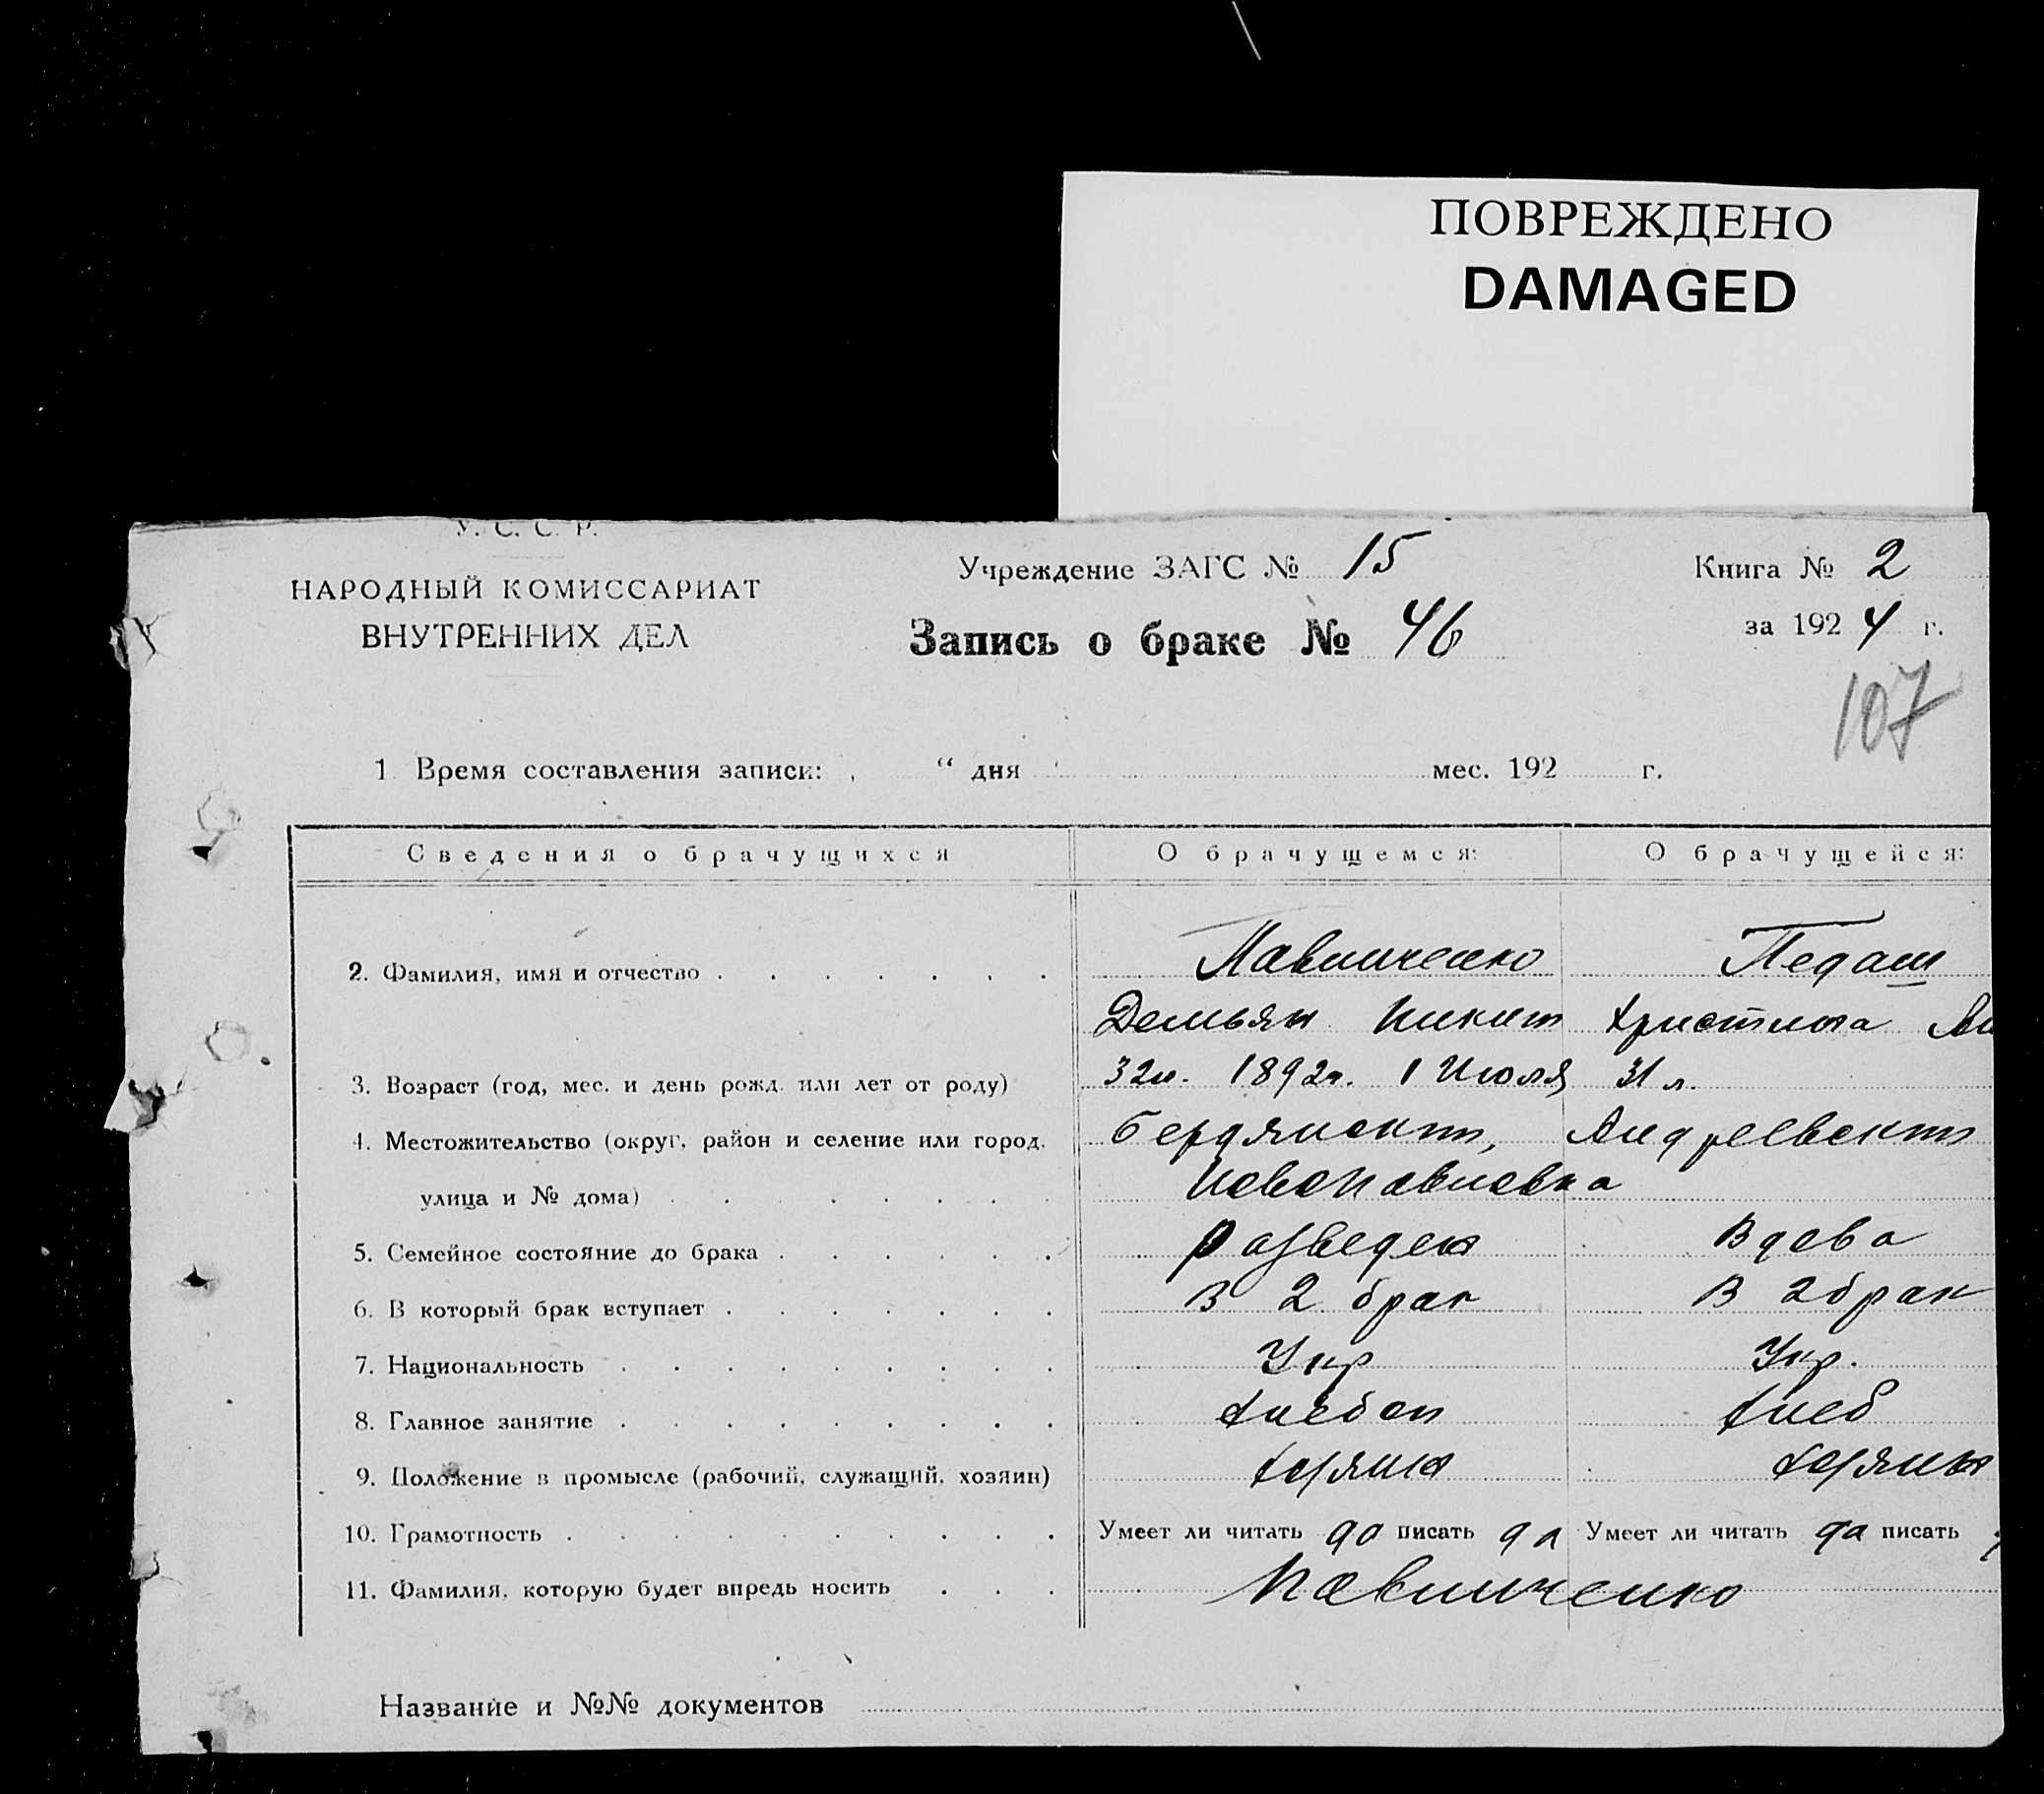 ПОВРЕЖДЕНО
DAMAGED
У. С. С. Р.
НАРОДНЫЙ КОМИССАРИАТ
ВНУТРЕННИХ ДЕЛ
Учреждение ЗАГС № 15
Книга № 2
Запись о браке № 46
за 1924 г.
107
1 Время составления записи: „ “ дня мес. 192 г.
Сведения о брачущихся О брачущемся: О брачущейся:
2. Фамилия, имя и отчество Павличенко Педаш
Демьян Никит Христина Ан
3. Возраст (год, мес. и день рожд. или лет от роду) 32л. 1892г. 1 Июля 31 л.
4. Местожительство (округ, район и селение или город, Бердянск Андреевск
улица и № дома) Новопавловка
5. Семейное состояние до брака Разведен Вдова
6. В который брак вступает в 2 брак в 2 брак
7. Национальность Укр Укр.
8. Главное занятие хлебоп хлеб
9. Положение в промысле (рабочий, служащий, хозяин) хозяин хозяин
10. Грамотность Умеет ли читать да писать да Умеет ли читать да писать
11. Фамилия, которую будет впредь носить Павличенко
Название и №№ документов